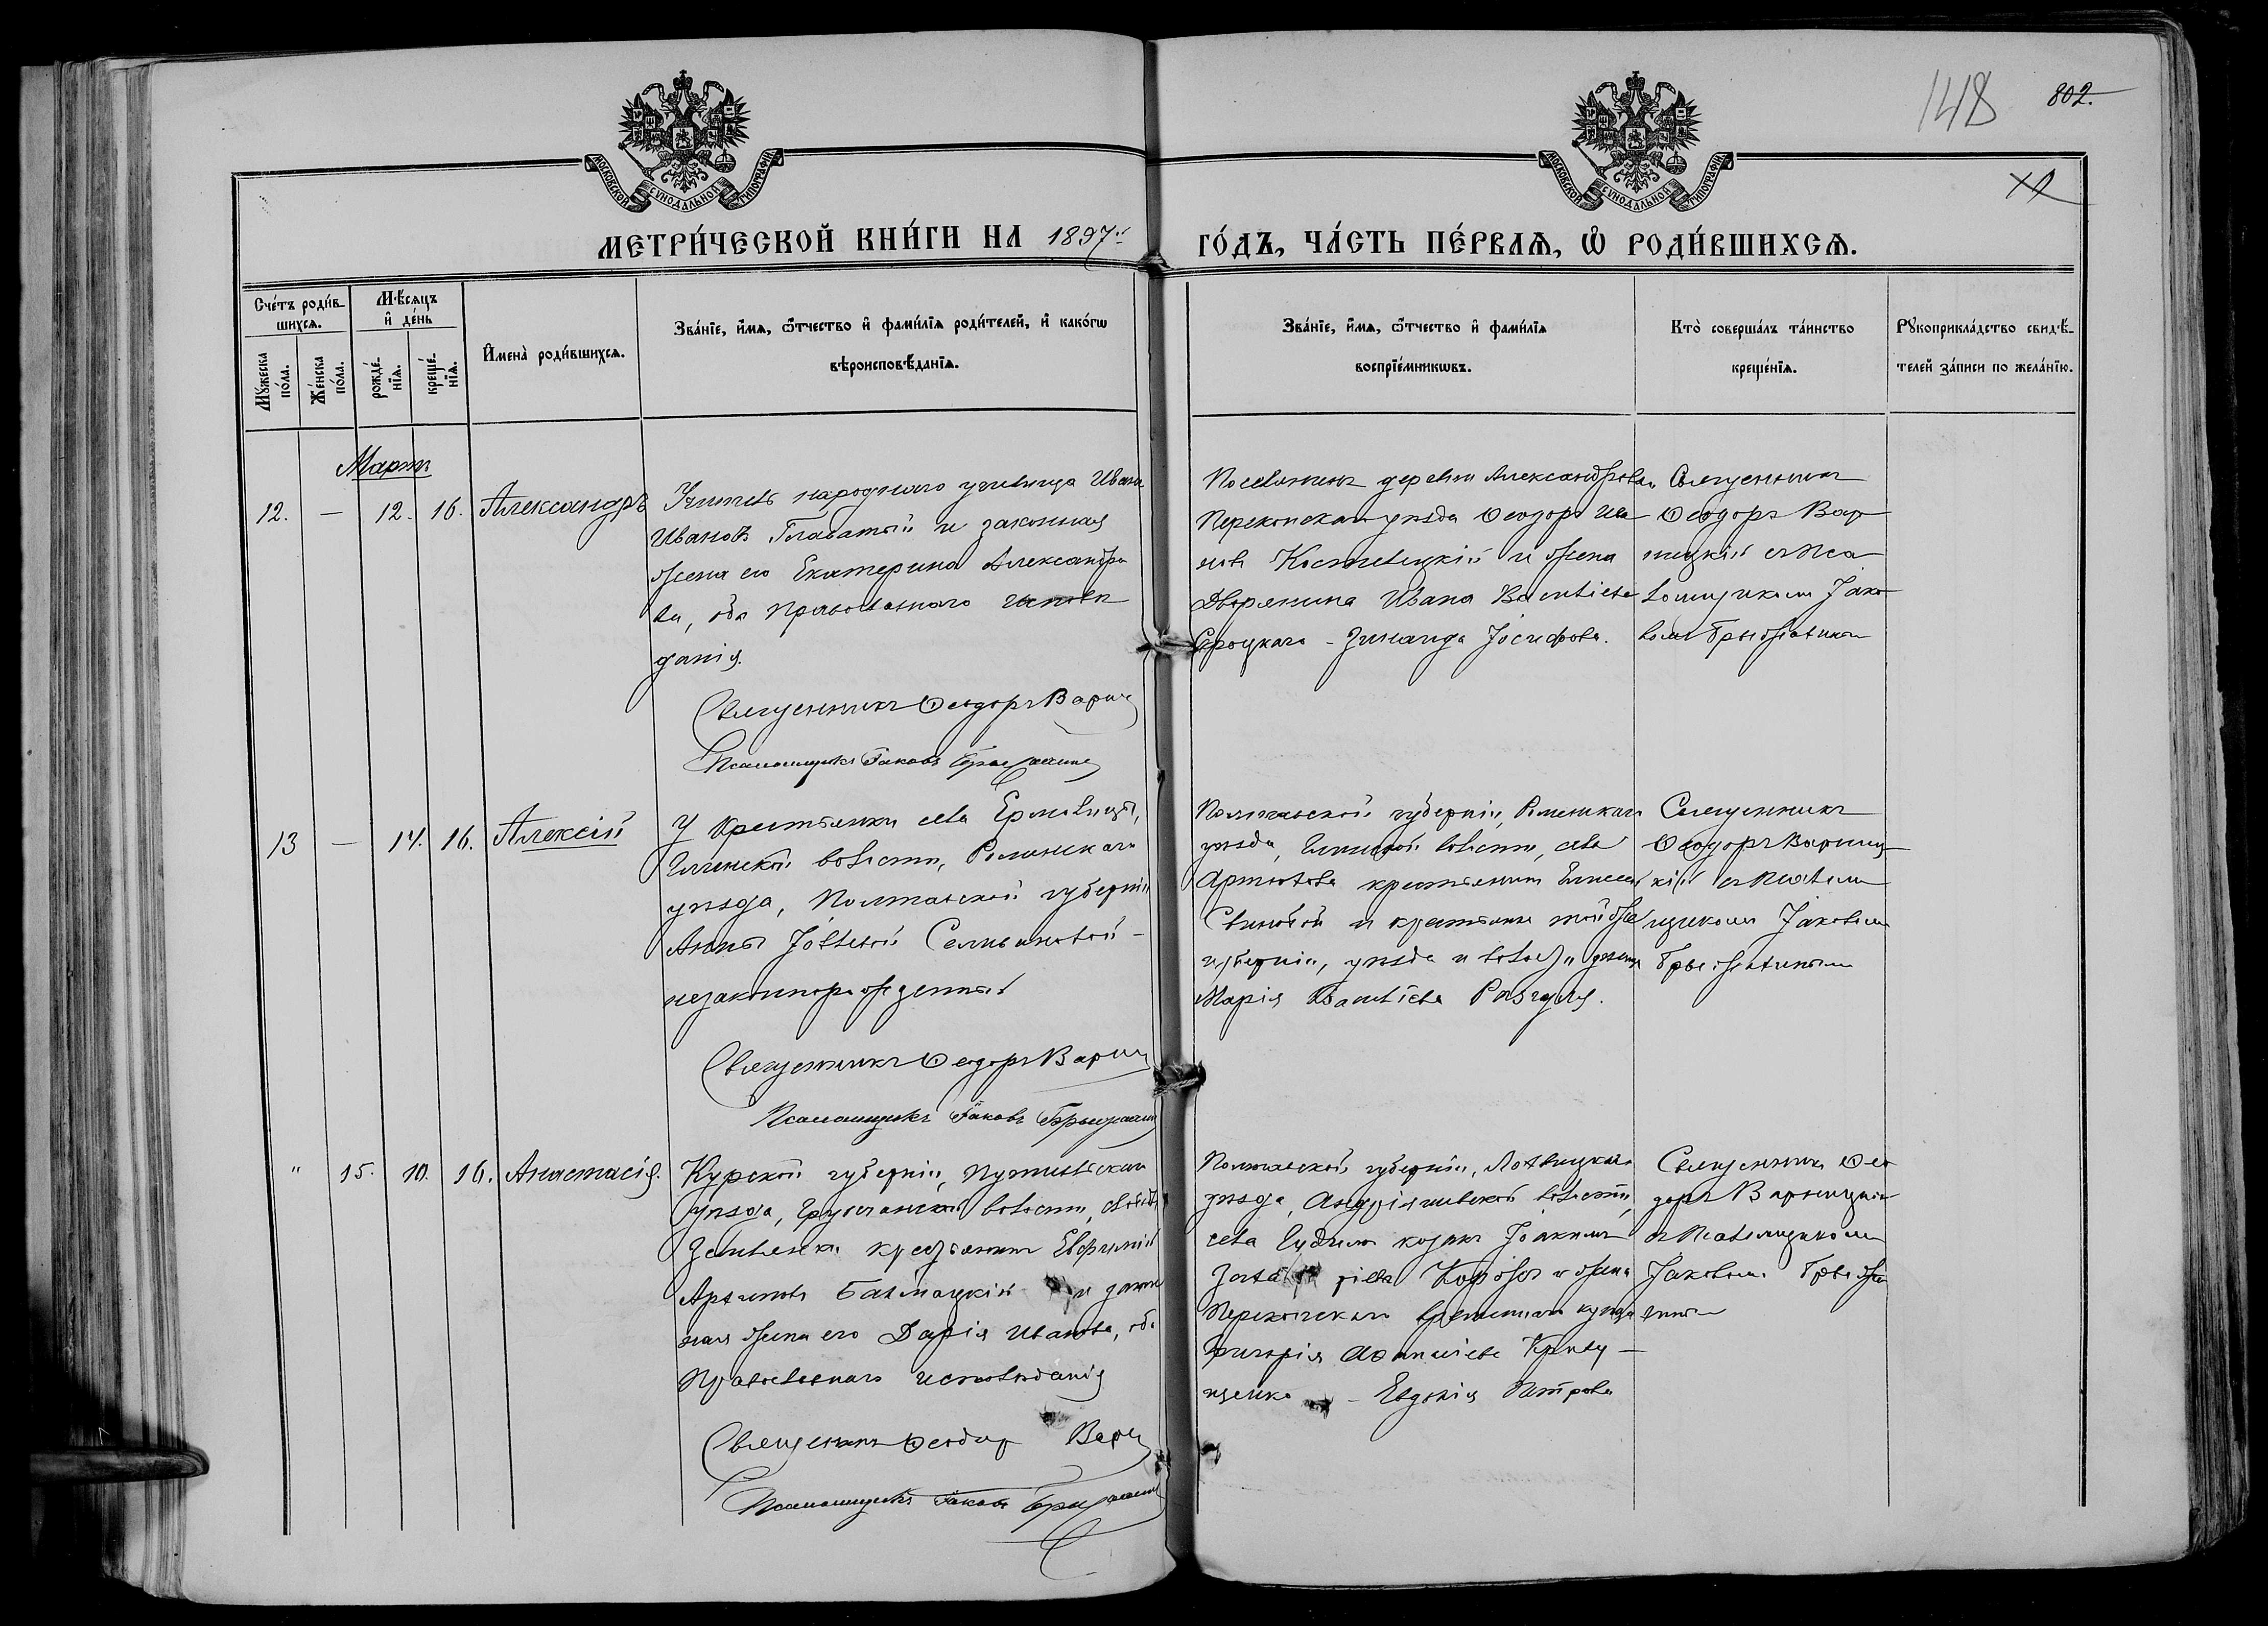 148 802.
МОСКОВСКОЙ СУНОДАЛЬНОЙ ТИПОГРАФІИ
МОСКОВСКОЙ СУНОДАЛЬНОЙ ТИПОГРАФІИ
МЕТРИ́ЧЕСКОЙ КНИ́ГИ НА 1897й ГО́ДЪ, ЧА́СТЬ ПЕ́РВАѦ, Ѡ҆ РОДИ́ВШИХСѦ.
Сче́тъ роди́в-
шихсѧ.
Мꙋ́жеска
по́ла.
Же́нска
по́ла.
Мѣ́сѧцъ
и҆ де́нь
рожде́-
нїѧ.
креще́-
нїѧ.
И҆мена̀ роди́вшихсѧ.
Зва́нїе, и҆́мѧ, ѻ҆́тчество и҆ фами́лїѧ роди́телей, и҆ како́гѡ
вѣроисповѣ́данїѧ.
Зва́нїе, и҆́мѧ, ѻ҆́тчество и҆ фами́лїѧ
воспрїе́мникѡвъ.
Кто̀ соверша́лъ та́инство
креще́нїѧ.
Рꙋкоприкла́дство свидѣ́-
телей за́писи по жела́нїю.
Мартъ
12. — 12. 16. Александръ
Учитель народнаго училища Иванъ
Ивановъ Головатый и законная
жена его Екатерина Александро
ва, оба Православнаго исповѣ
данія.
Священникъ Ѳеодоръ Варниц
Псаломщикъ Іаковъ
Поселянинъ деревни Александровки
Перекопскаго уѣзда Ѳеодоръ Ива
новъ Костелецкій и жена
Дворянина Ивана Васильева
Сроцкаго - Зинаида Іосифова.
Священникъ
Ѳеодоръ Вар
ницкій съ Пса
ломщикомъ Іако
вомъ
13 — 14. 16. Алексій
У крестьянки села Ярмолинцы,
Глинской волости, Роменскаго
уѣзда, Полтавской губерніи
Анны Іовлевой Семьиновой -
незаконнорожденный
Священникъ Ѳеодоръ Варниц
Псаломщикъ Іаковъ
Полтавской губерніи, Роменскаго
уѣзда, Глинской волости, села
Артюхова крестьянинъ Елисей
и крестьянка той же
губерніи, уѣзда и волости дѣвица
Марія Васильева
Священникъ
Ѳеодоръ Варниц
кій съ Псалом
щикомъ Іаковомъ
" 15. 10. 16. Анастасія.
Курской губерніи, Путивльскаго
уѣзда, Грузчанской волости, слободы
крестьянинъ Евфимій
Архиповъ Бахмацкій и закон
ная жена его Дарія Иванова, оба
Православнаго исповѣданія
Священникъ Ѳеодоръ Варн
Псаломщикъ Іаковъ
Полтавской губерніи, Лохвицкаго
уѣзда, Андріяшевской волости,
села Гудимъ козакъ Іоакимъ
Коржъ и жена
Перекопскаго временнаго купца
Григорія Аѳанасіева Криву-
щенка - Евдокія Петрова
Священникъ Ѳео
доръ Варницкій
съ Псаломщикомъ
Іаковомъ